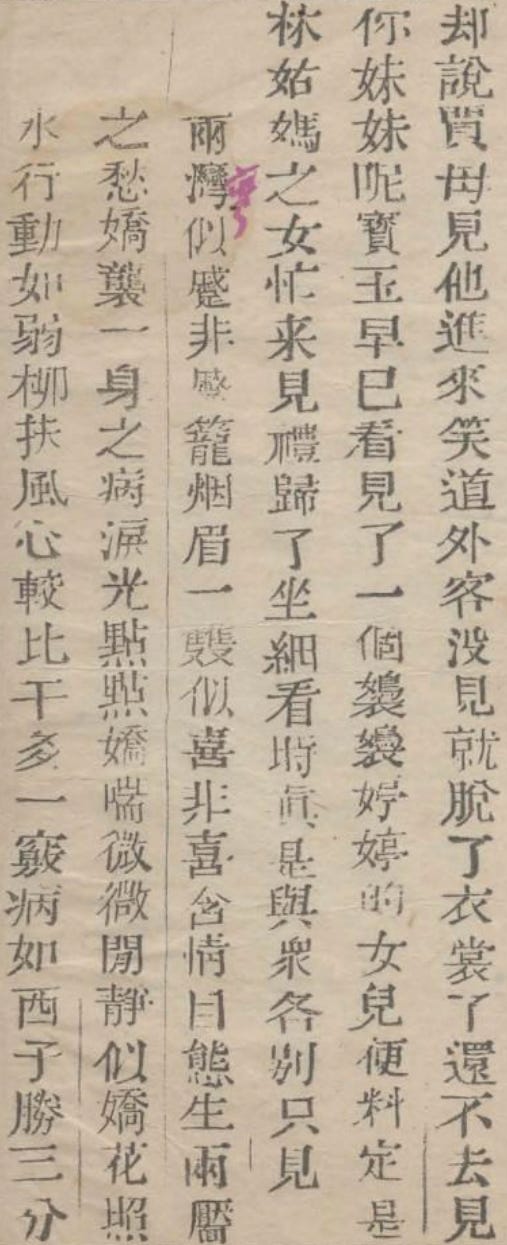 却說賈母見他進來笑道外客没見就脫了衣裳了還不去見
你妹妹呢寳玉早已看見了一個裊裊婷婷的女兒便料定是
林姑媽之女忙来見禮歸了坐細看時真是與衆各別只見
兩灣似蹙非蹙籠烟眉一雙似喜非喜含情目態生兩靨
之愁嬌襲一身之病淚光點點嬌喘微微閒靜似嬌花照
水行動如弱柳扶風心較比干多一竅病如西子勝三分